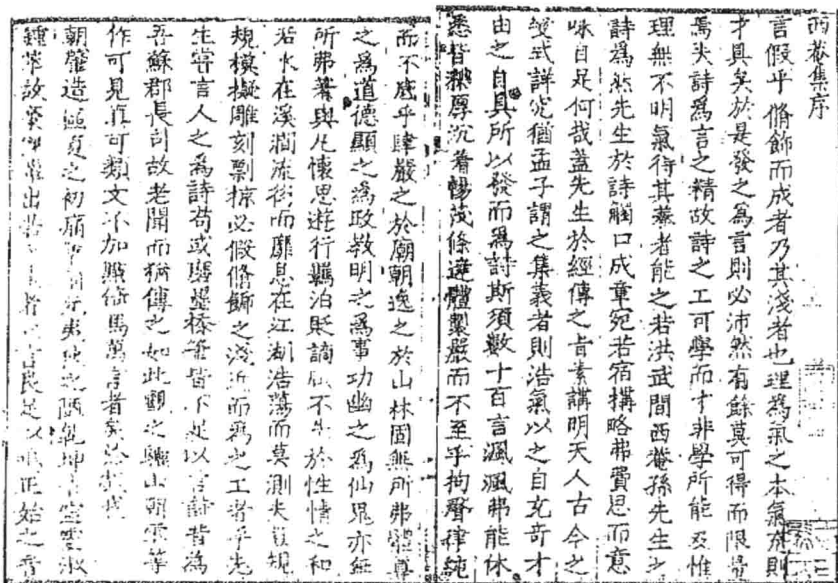 西菴集序
言假乎脩飾而成者乃其淺者也理為氣之本氣充則
才具矣於是發之為言則必沛然有餘莫可得而限量
焉夫詩為言之精故詩之工可學而才非學所能及惟
理無不明氣得其養者能之若洪武間西菴孫先生之
詩為然先生於詩觸口成章宛若宿搆略弗費思而意
味自足何哉蓋先生於經傳之旨素講明天人古今之
變式詳究猶孟子謂之集義者則浩氣以之自充奇才
由之自具所以發而為詩斯須數十百言渢渢弗能休
悉皆穠厚沉着暢茂條達體製嚴而不至乎拘聲律純
而不底乎肆嚴之於廟朝逸之於山林固無所弗體尊
之為道德顯之為政教明之為事功幽之為仙鬼亦無
所弗著與凡懷思遊行羈泊貶謫罔不於性情之和
若水在溪澗流衍而靡息在江湖浩蕩而莫測夫豈規
規模擬雕刻剽掠必假脩飾之淺近而為之工者乎先
生嘗言人之為詩苟或皆下足以言詩昔為
吾蘇郡長司故老聞而猶傳之如此觀之驪山朝雲等
作可見真可類文不加點倚馬萬言者矣於戲我
朝肇造區夏之初之陋乾坤
鍾萃故出若者言良足以正始之音